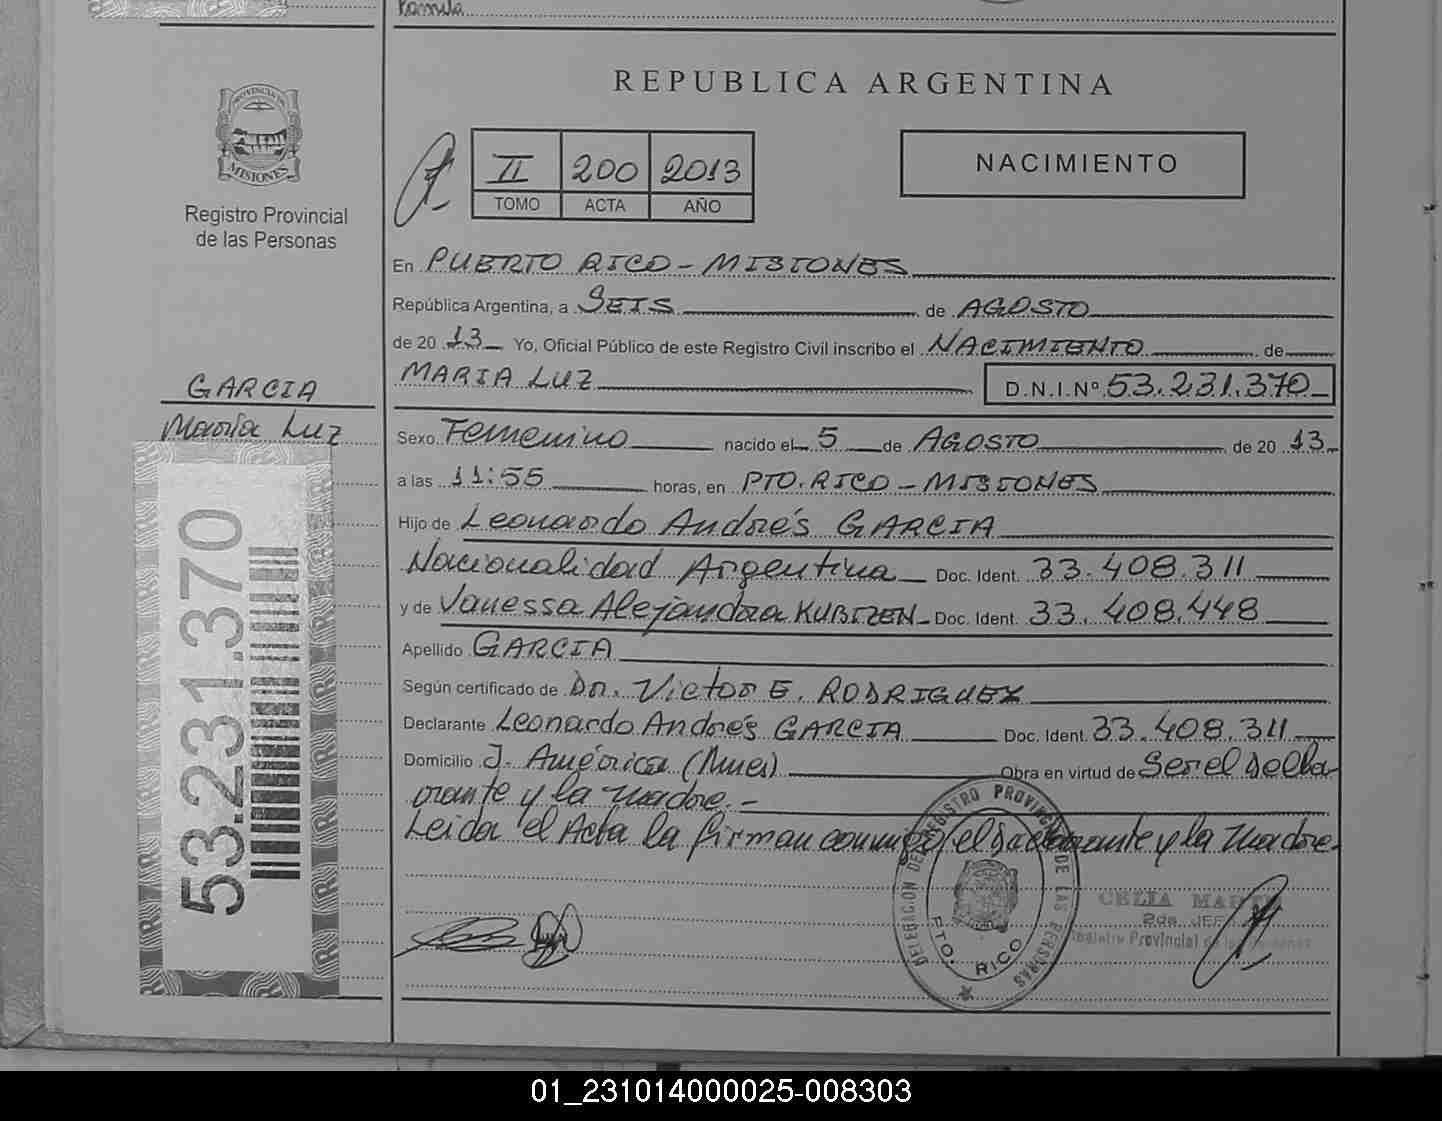 Pamela
REPUBLICA ARGENTINA
PROVINCIA DE
MISIONES
Registro Provincial
de las Personas
II 200 2013
TOMO ACTA AÑO
NACIMIENTO
En PUERTO RICO - MISIONES
República Argentina, a SEIS de AGOSTO
de 20 13 Yo, Oficial Público de este Registro Civil inscribo el NACIMIENTO de
MARIA LUZ D.N.I.Nº 53.231.370
GARCIA
María Luz
Sexo Femenino nacido el 5 de AGOSTO de 20 13
a las 11:55 horas, en PTO. RICO - MISIONES
Hijo de Leonardo Andrés GARCIA
Nacionalidad Argentina Doc. Ident. 33.408.311
y de Vanessa Alejandra KUBIZEN Doc. Ident. 33.408.448
Apellido GARCIA
Según certificado de Dr. Victor E. RODRIGUEZ
Declarante Leonardo Andrés GARCIA Doc. Ident. 33.408.311
Domicilio J. América (Mnes) Obra en virtud de Ser el Decla
rante y la madre.-
Leida el Acta la firman conmigo el Declarante y la madre.
53.231.370
DELEGACION DEL REGISTRO PROVINCIAL DE LAS PERSONAS
PTO. RICO
CELIA
2da. JEFA
Registro Provincial de las Personas
01_231014000025-008303